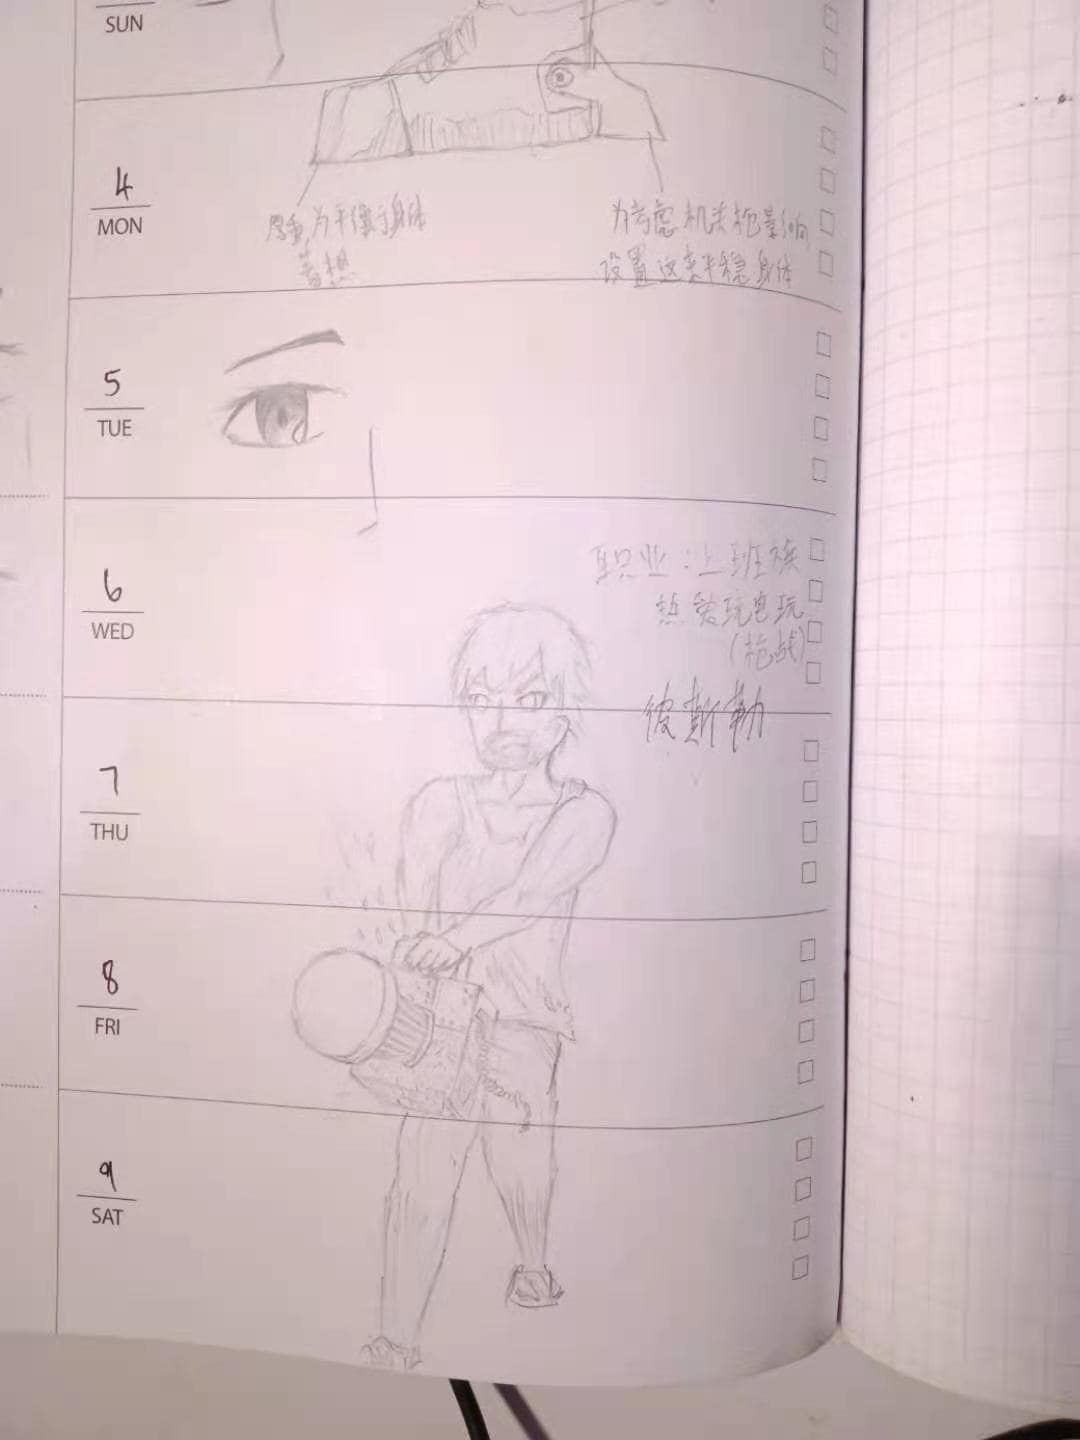 SUN
4
MON
厚重,为平衡身体
着想
为考虑机关枪影响
设置这来平稳身体
5
TUE
6
WED
职业：上班族
热爱玩电玩
(枪战)
彼斯勒
7
THU
8
FRI
9
SAT